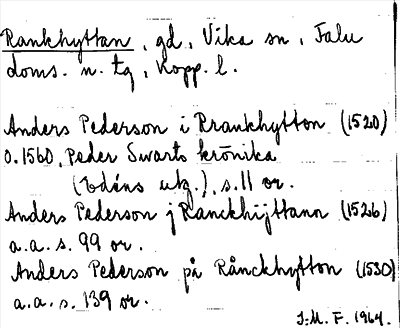 Rankhyttan, gd, Vika sn, Falu
doms. n. tg, Kopp. l.
Anders Pederson i Rrankhytton (1520)
o. 1560, Peder Swarts krönika
(Edéns utg.), s. 11 or.
Anders Pederson j Ranckhijttann (1526)
a.a. s. 99 or.
Anders Pederson på Rånckhytton (1530)
a.a. s. 139 or.
I.M. F. 1964.